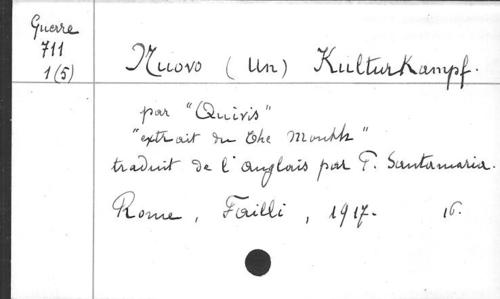 Guerre
711
1(5)
Nuovo (Un) Kulturkampf.
par "Quivis"
"extrait du The Month"
traduit de l'anglais par F. Santamaria.
Rome, Failli, 1917. 16.